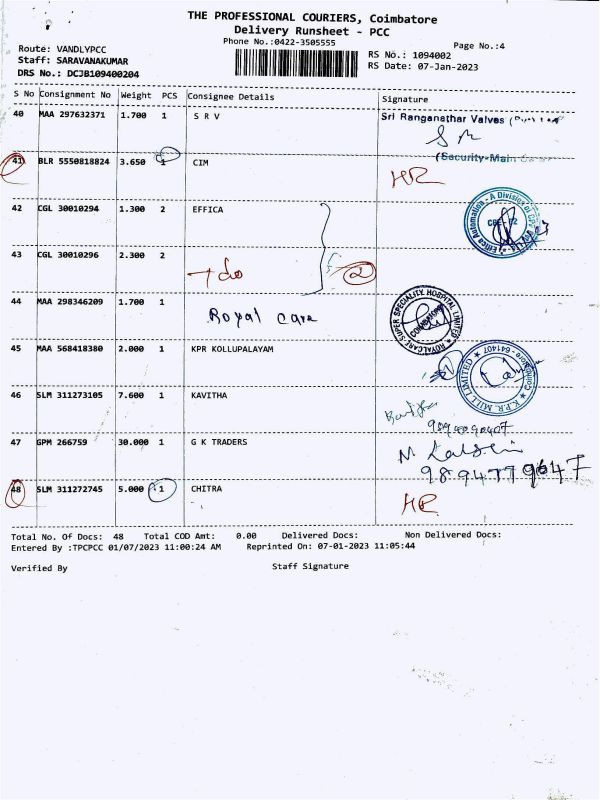 THE PROFESSIONAL COURIERS, Coimbatore
Delivery Runsheet - PCC
Phone No.:0422-3505555
Page No.:4
Route: VANDLYPCC
Staff: SARAVANAKUMAR
DRS No.: DCJB109400204
RS No.: 1094002
RS Date: 07-Jan-2023
S No Consignment No Weight PCS Consignee Details Signature
40 MAA 297632371 1.700 1 S R V Sri Ranganathar Valves
(Security-Main
41 BLR 5550818824 3.650 1 CIM HR
42 CGL 30010294 1.300 2 EFFICA
Effica Automation - A Division of
43 CGL 30010296 2.300 2
do 2
44 MAA 298346209 1.700 1 Royal care
ROYALCARE SUPER SPECIALITY HOSPITAL LIMITED
COIMBATORE
45 MAA 568418380 2.000 1 KPR KOLLUPALAYAM
K.P.R. MILL LIMITED Coimbatore - 641407
46 SLM 311273105 7.600 1 KAVITHA
47 GPM 266759 30.000 1 G K TRADERS
9894779647
48 SLM 311272745 5.000 1 CHITRA HR
Total No. Of Docs: 48 Total COD Amt: 0.00 Delivered Docs: Non Delivered Docs:
Entered By :TPCPCC 01/07/2023 11:00:24 AM Reprinted On: 07-01-2023 11:05:44
Verified By Staff Signature